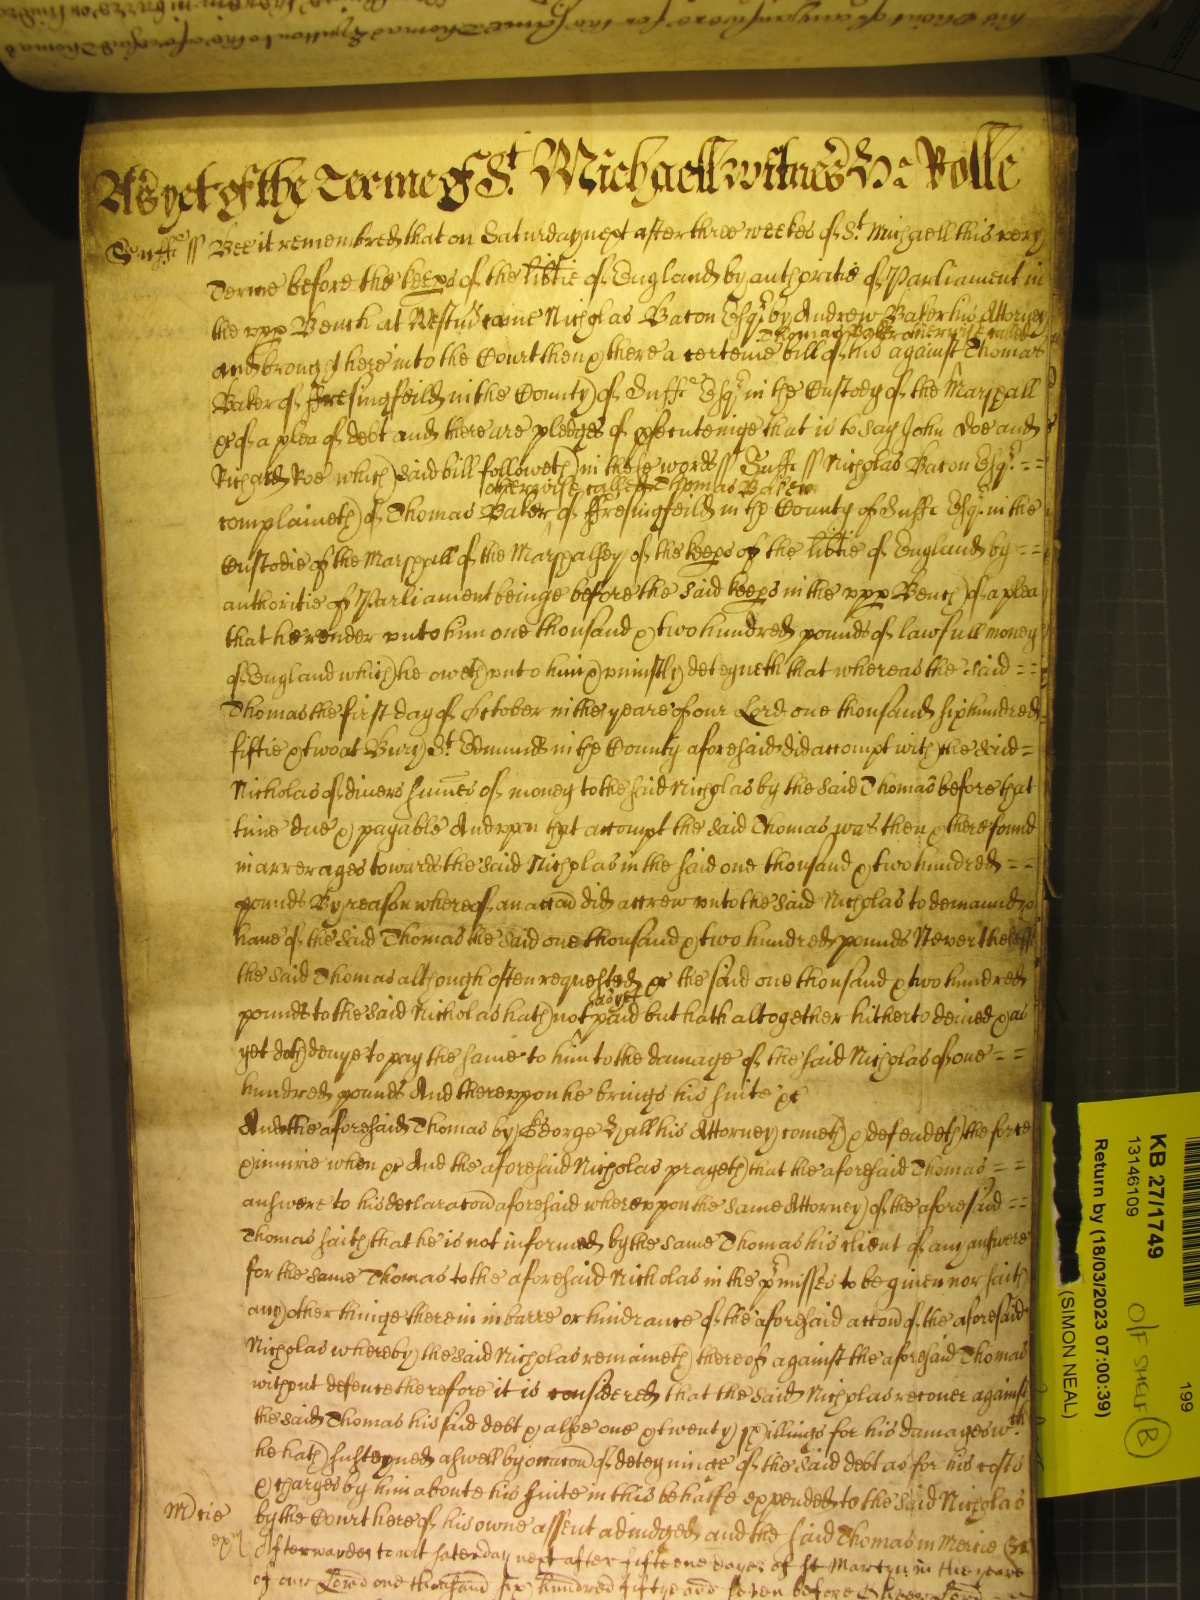 As yet of the Terme of St. Michaell witnes He: Rolle
Suff ss Bee it remembred that on Saturday next after three weekes of St. Michaell this very
Terme before the keeps of the libtie of England by authoritie of Parliament in
the vpp Bench at Westm came Nicholas Bacon Esqr. by Andrew Baker his Attorney
Thomas Baker otherwise called
and brought here into the Court then & there a certeine bill of his against Thomas
Baker of Fresingfeild in the County of Suff Esqr. in the Custody of the Marshall
&c of a plea of debt and there are pledges of psecuteinge that is to say John Doe and
Richard Roe which said bill followeth in these words ss Suff ss Nicholas Bacon Esqr. = =
otherwise called Thomas Baker
complaineth of Thomas Baker of Fresingfeild in the County of Suff Esqr. in the
Custodie of the Marshall of the Marshalsey of the keeps of the libtie of England by = =
authoritie of Parliament beinge before the said keeps in the vpp Bench of a plea
that he render vnto him one thousand & two hundred pounds of lawfull money
of England which he oweth vnto him & vniustly deteyneth that whereas the said = =
Thomas the first day of October in the yeare of our Lord one thousand six hundred
fiftie & two at Bury St. Edmunds in the County aforesaid did accompt with the said =
Nicholas of divers summes of money to the said Nicholas by the said Thomas before that
time due & payable And vpon that accompt the said Thomas was then & there found
in arrerages towards the said Nicholas in the said one thousand & two hundred = =
pounds By reason whereof an accon did accrew vnto the said Nicholas to demaund &
have of the said Thomas the said one thousand & two hundred pounds Neverthelesse
the said Thomas although often requested &c the said one thousand & two hundred
as yet
pounds to the said Nicholas hath not paid but hath altogether hitherto denied & as
yet doth denye to pay the same to him to the damage of the said Nicholas of one = =
hundred pounds And therevpon he brings his suite &c
And the aforesaid Thomas by George Hall his Attorney cometh & defendeth the force
& iniurie when &c And the aforesaid Nicholas prayeth that the aforesaid Thomas = =
answere to his declaracon aforesaid wherevpon the same Attorney of the aforesaid = =
Thomas saith that he is not informed by the same Thomas his client of any answere
for the same Thomas to the aforesaid Nicholas in the pmisses to be given nor saith
any other thinge therein in barre or hindrance of the aforesaid accon of the aforesaid
Nicholas whereby the said Nicholas remaineth thereof against the aforesaid Thomas
without defence therefore it is considered that the said Nicholas recover against
the said Thomas his said debt & alsoe one & twenty shillings for his damages wch
he hath susteyned aswell by occacon of deteyninge of the said debt as for his costs
& charges by him aboute his suite in this behalfe expended to the said Nicholas
by the Court here of his owne assent adiudged and the said Thomas in Mercie &c
Mcie
Afterwardes to wit Saterday next after fifteene dayes of St Martyn in the yeare
of our Lord one thousand six hundred fiftye and seven before
KB 27/1749
13146109
Return by (18/03/2023 07:00:39)
(SIMON NEAL)
199
O/F SHELF
B